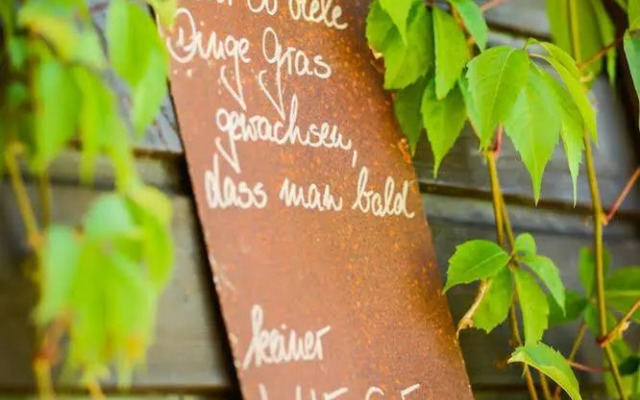 so viele
Dinge Gras
gewachsen,
dass man bald
keiner